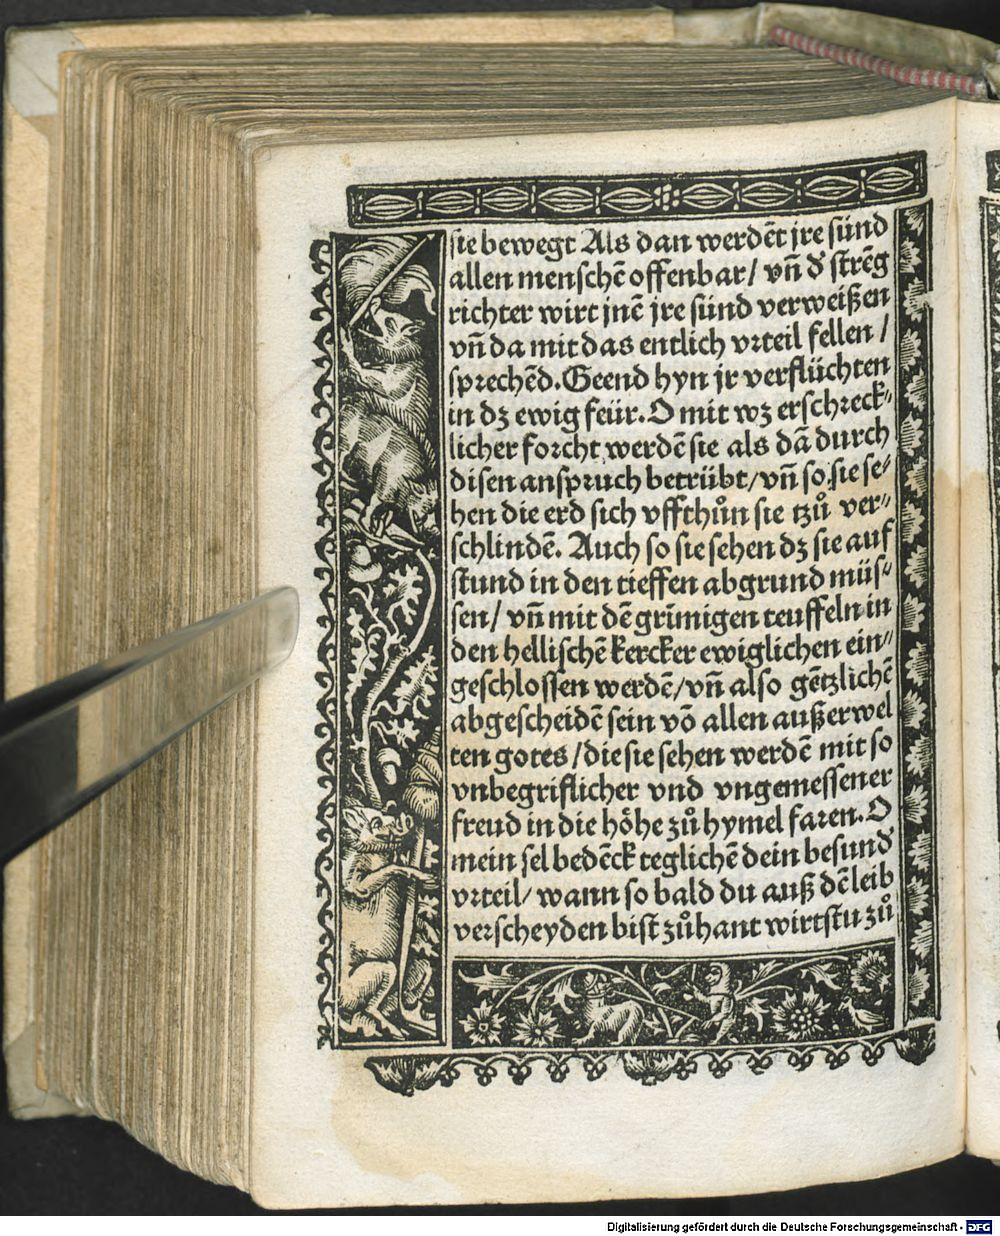 sie bewegt Als dan werdēt jre sünd
allen menschē offenbar/ vn̄ d' strēg
richter wirt jnē jre sünd verweißen
vn̄ da mit das entlich vrteil fellen /
sprechēd. Geend hyn jr verflüchten
in dz ewig feür. O mit wz erschreck⸗
licher forcht werdē sie als dā durch
disen anspruch betrübt/ vn̄ so sie se⸗
hen die erd sich vffthůn sie tzů ver⸗
schlindē. Auch so sie sehen dz sie auf
stund in den tieffen abgrund müs⸗
sen/ vn̄ mit dē grīmigen teuffeln in
den hellischē kercker ewiglichen ein⸗
geschlossen werdē/ vn̄ also gētzlichē
abgescheidē sein vō allen außerwel
ten gotes / die sie sehen werdē mit so
vnbegriflicher vnd vngemessener
freud in die höhe zů hymel faren. O
mein sel bedēck teglichē dein besund'
vrteil/ wann so bald du auß dē leib
verscheyden bist zůhant wirtstu zů
Digitalisierung gefördert durch die Deutsche Forschungsgemeinschaft - DFG